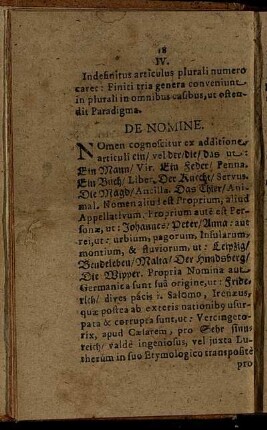 18
IV.
Indefinitus articulus plurali numero
caret: Finiti tria genera conveniunt
in plurali in omnibus casibus, ut osten-
dit Paradigma.
DE NOMINE.
NOmen cognoscitur ex additione
articuli ein/ vel der/die/das ut:
Ein Mann/ Vir. Ein Feder/ Penna.
Ein Buch/ Liber. Der Knecht/ Servus.
Die Magd/ Ancilla. Das Thier/ Ani-
mal. Nomen aliud est Proprium, aliud
Appellativum. Proprium autē est Per-
sonæ, ut: Johannes/ Peter/ Anna: aut
rei, ut: urbium, pagorum, Insularum,
montium, & fluviorum, ut: Leipzig/
Bendeleben/ Malta/ Der Hundsberg/
Die Wipper. Propria Nomina aut
Germanica sunt suâ origine, ut: Fride-
rich/ dires pacis i. Salomo, Irenæus,
quæ postea ab exteris nationibꝰ usur-
pata & corrupta sunt, ut: Vercingeto-
rix, apud Cæsarem, pro Sehr sinn-
reich/ valdè ingeniosus, vel juxta Lu-
therum in suo Etymologico transpositè
pro